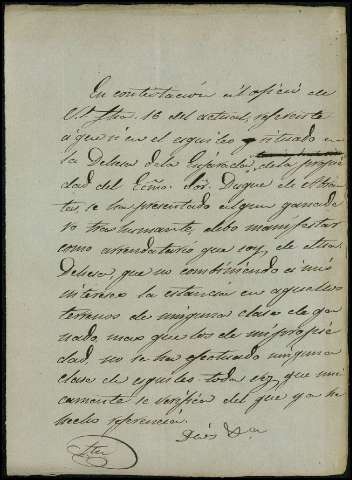 En contestación al oficio de
V. Sria. 16 del actual, referente
á que si en el esquileo situado en
la Dehesa de la de la propie
dad del Exmo. Sor. Duque de Abran
tes, se ha presentado algun ganade
ro trashumante, debo manifestar
como arrendatario que soy, de dicha
Dehesa, que no combiniendo á mis
intereses la estancia en aquellos
terrenos de ninguna clase de ga
nado, mas que los de mi propie
dad, no se ha efectuado ninguna
clase de esquileo toda vez, que uni
camente se verifica del que ya he
hecho referencia.
Dios